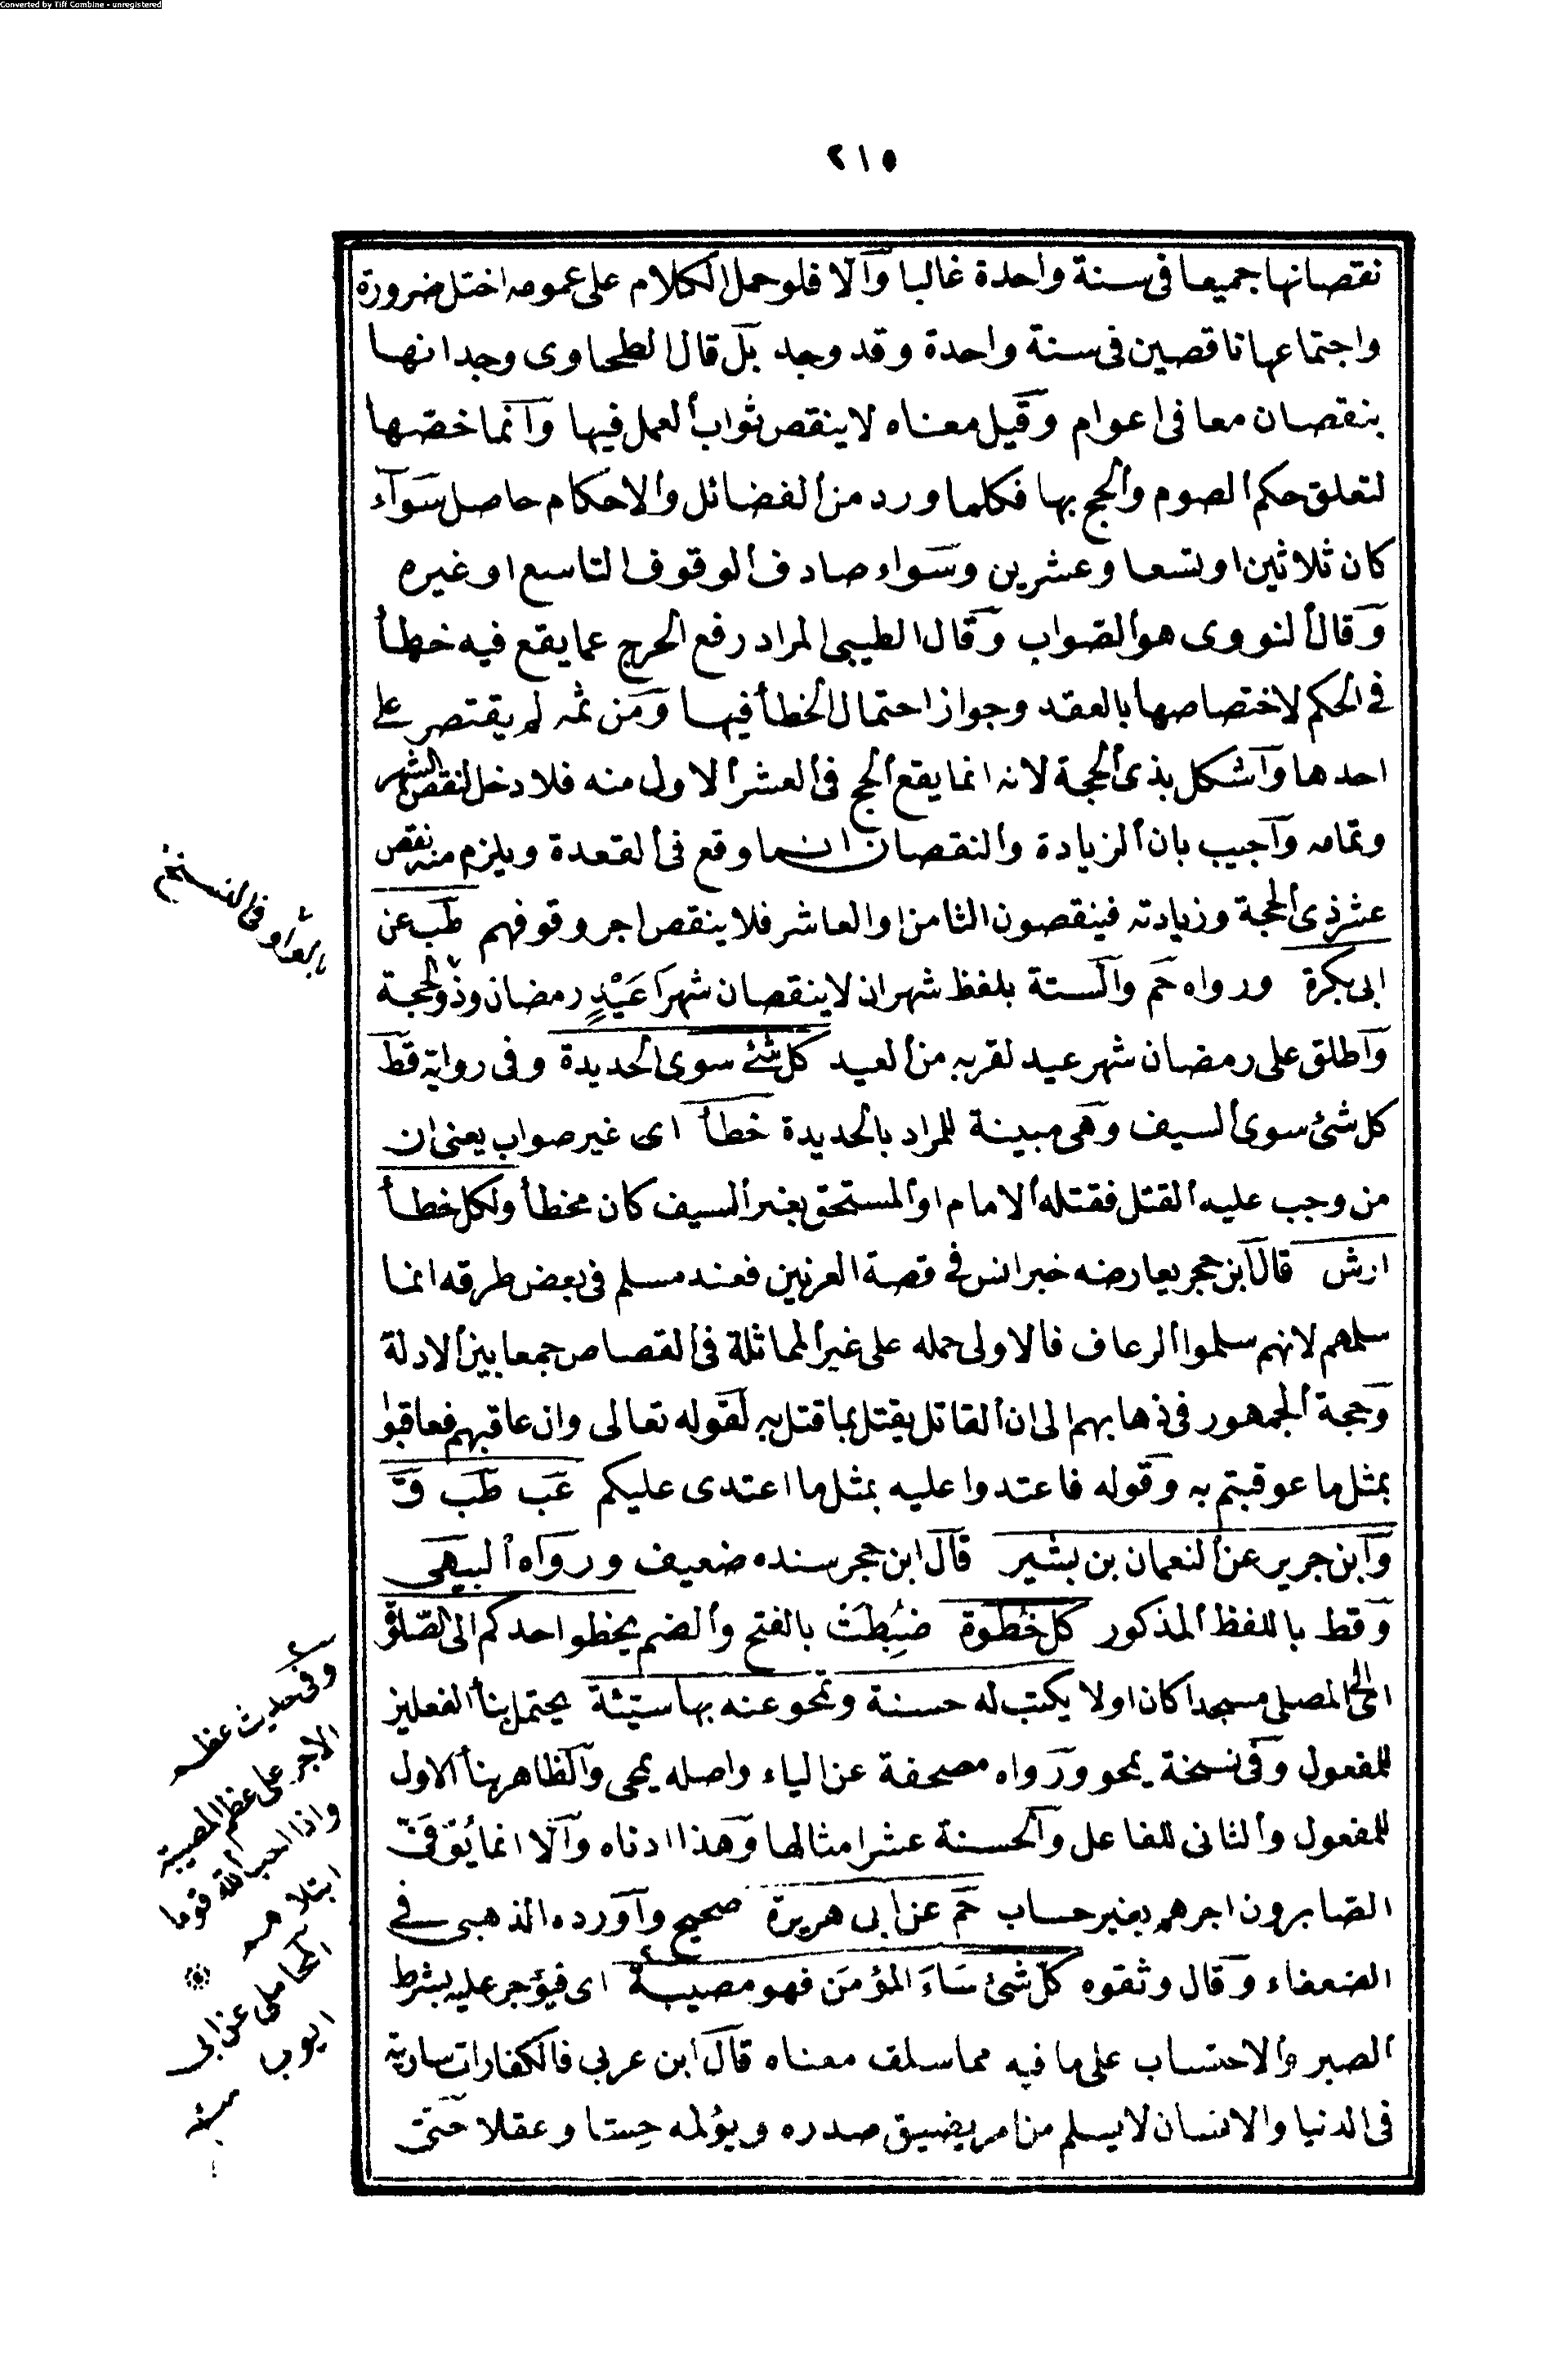 Converted by Tiff Combine - unregistered
٢١٥
نقصانها جميعا فى سنة واحدة غالبا وآلا فلو حمل الكلام على عمومه اختل ضرورة
واجتماعها ناقصين فى سنة واحدة وقد وجد بل قال الطحاوى وجدانهما
ينقصان معا فى اعوام وقيل معناه لا ينقص ثواب العمل فيها وانما خصها
لتعلق حكم الصوم والحج بها فكلما ورد من الفضائل والاحكام حاصل سوآء
كان ثلاثين او تسعا وعشرين وسواء صادف الوقوف التاسع او غيره
وقال النووى هو الصواب وقال الطيبى المراد رفع الحرج عما يقع فيه خطأ
فى الحكم لاختصاصها بالعقد وجواز احتمال الخطأ فيها ومن ثمه لم يقتصر على
احدها وآشكل بذى الحجة لانه انما يقع الحج فى العشر الاول منه فلا دخل لنقص الشهر
وتمامه وآجيب بان الزيادة والنقصان انما وقع فى القعدة ويلزم منه نقص
عشر ذى الحجة وزيادته فينقصون الثامن او العاشر فلا ينقص اجر وقوفهم طب عن
ابى بكرة ورواه حم والستة بلفظ شهران لا ينقصان شهرا عَيْدٍ رمضان وذو الحجة
وآطلق على رمضان شهر عيد لقربه من العيد كل شئ سوى الحديدة وفى رواية قط
كل شئ سوى السيف وهى مبينة للمراد بالحديدة خطأ اى غير صواب يعنى ان
من وجب عليه القتل فقتله الامام او المستحق بغير السيف كان مخطأ ولكل خطأ
ارش قال ابن حجر يعارضه خبر انس فى قصة العرنيين فعند مسلم فى بعض طرقه انما
سملهم لانهم سملوا الرعاف فالاولى حمله على غير المماثلة فى القصاص جمعا بين الادلة
وحجة الجمهور فى ذهابهم الى ان القاتل يقتل بما قتل به لقوله تعالى وان عاقبهم فعاقبوا
بمثل ما عوقبتم به وقوله فاعتدوا عليه بمثل ما اعتدى عليكم عب طب ق
وآبن جرير عن النعمان بن بشير قال ابن حجر سنده ضعيف ورواه البيهى
وقط باللفظ المذكور كل خُطْوة ضُبِطَتْ بالفتح والضم يخطو احدكم الى الصّلوة
الى المصلى مسجدا كان اولا يكتب له حسنة وتمحو عنه بها سيّئة يحتمل بنأ الفعلين
للمفعول وفى نسخة يمحو ورواه مصحفة عن الياء واصله يمحى والظاهر بنأ الاول
للمفعول والثانى للفاعل والحسنة عشر امثالها وهذا ادناه وآلا انما يُوَفَّى
الصّابرون اجرهم بغير حساب حم عن ابى هريرة صحيح وآورده الذهبى فى
الضعفاء وقال وثقوه كل شئ سَاءَ المؤمنَ فهو مصيبة اى فيؤجر عليه بشرط
الصبر والاحتساب على ما فيه مما سلف معناه قال ابن عربى فالكفارات سارية
فى الدنيا والانسان لا يسلم من امر يضيق صدره ويؤلمه حِسّا وعقلا حتى
بالعا وفى النسخ
وفى حديث عظم
الاجر على عظم المصيبة
واذا احب الله قوما
ابتلاهم
المحاملى عن ابى
ايوب
منه